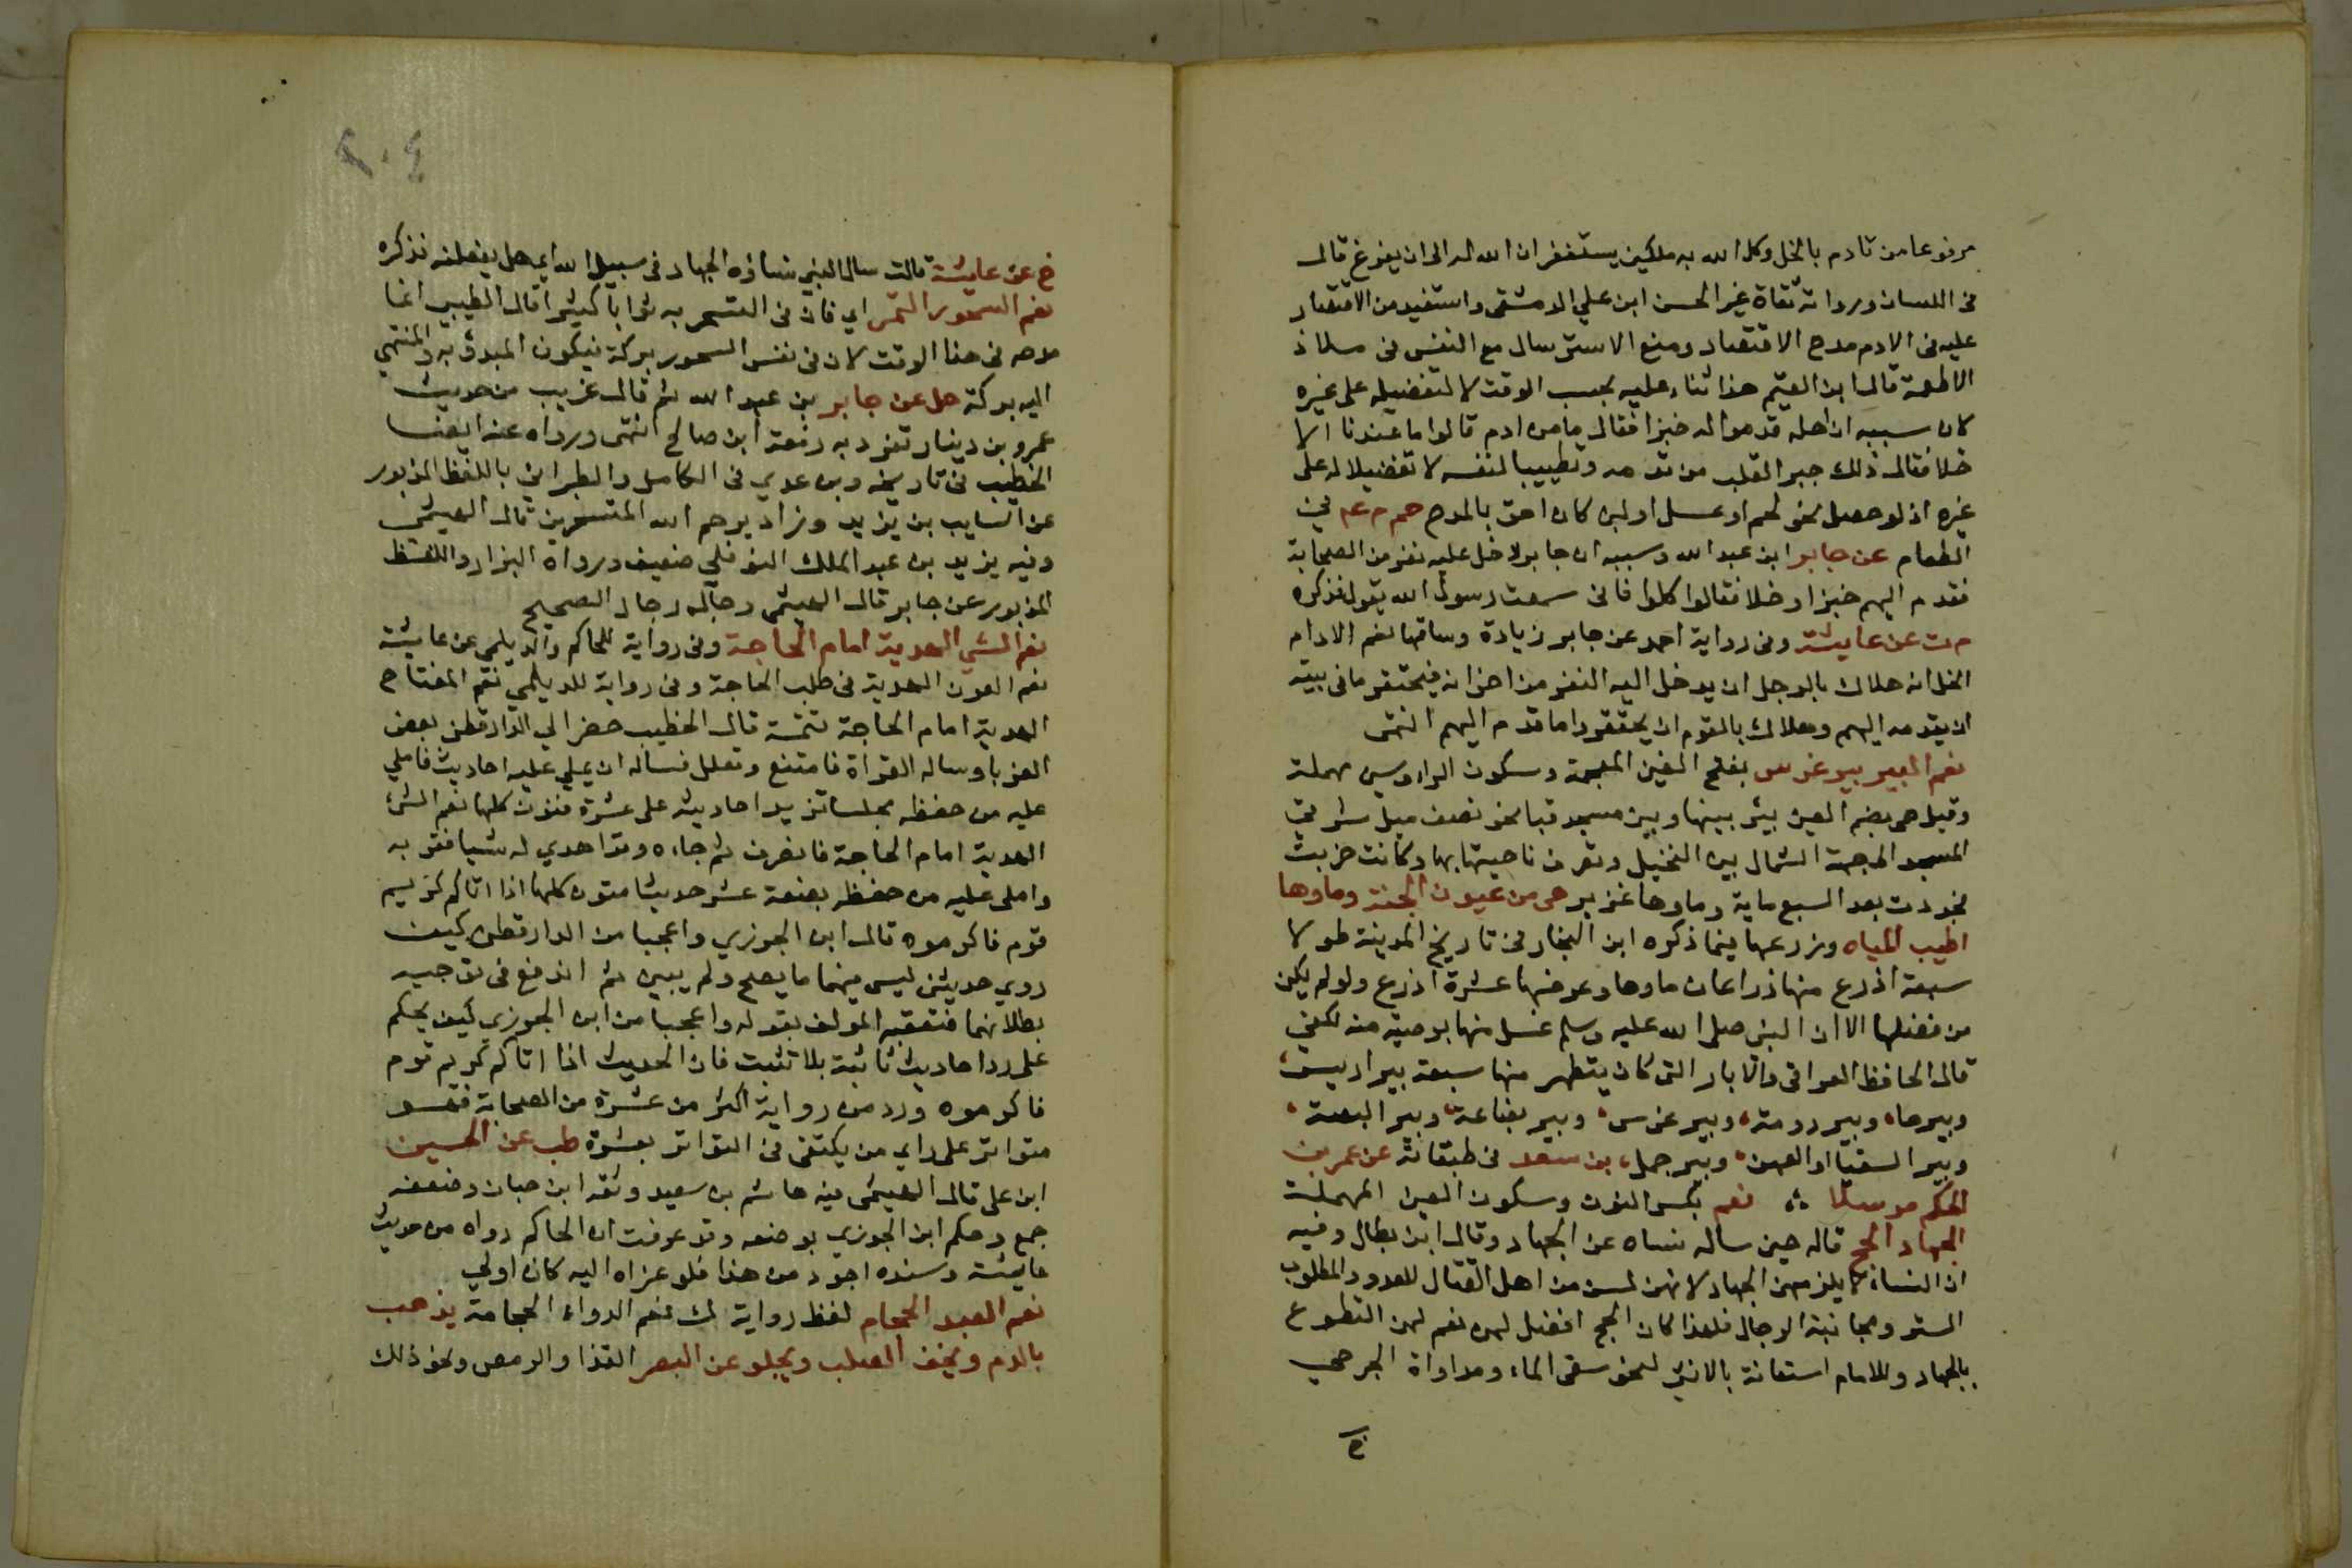 مرفوعا من تادم بالخل وكل الله به ملكين يستغفران الله له الى ان يفرغ قال
في اللسان ورواته ثقاة غير الحسن ابن علي الدمشقي واستفيد من الاقتصار
عليه في الادم مدح الاقتصاد ومنع الاسترسال مع النفس في ملاذ
الاطعمة قال ابن القيم هذا ثناء عليه بحسب الوقت لا لتفضيله على غيره
لان سببه ان اهله قدموا له خبزا فقال ما من ادم قالوا ما عندنا الا
خلا فقال ذلك جبر القلب من قدمه وتطييبا لنفسه لا تفضيلا له على
غيره اذ لو حصل نحو لحم او عسل او لبن كان احق بالمدح حم م عم في
الطعام عن جابر ابن عبد الله وسببه ان جابر دخل عليه نفر من الصحابة
فقدم اليهم خبزا وخلا فقالوا كلوا فاني سمعت رسول الله يقول فذكره
م ت عن عايشة وفي رواية احمد عن جابر زيادة وساقها نعم الادام
الخل انه هلاك بالرجل ان يدخل اليه النفر من اخوانه فيحتقر ما في بيته
ان يقدمه اليهم وهلاك بالقوم ان يحتقروا ما قدم اليهم انتهى
نعم البير بير غرس بفتح الغين المعجمة وسكون الراء وسين مهملة
وقيل هي بضم الغين بير بينها وبين مسجد قبا نحو نصف ميل شرقي
المسجد الى جهة الشمال بين النخيل وتعرف ناحيتها بها وكانت خربت
فجددت بعد السبع ماية وماوها غزير هي من عيون الجنة وماوها
اطيب المياه وذرعها فيما ذكره ابن النجار في تاريخ المدينة طولا
سبعة اذرع منها ذراعان ماوها وعرضها عشرة اذرع ولو لم يكن
من فضلها الا ان النبي صلى الله عليه وسلم غسل منها بوصية منه لكفي
قال الحافظ العراقي والابار التي كان يتطهر منها سبعة بير اريس
وبيرحاء وبير رومة وبير غرس وبير بضاعة وبير البصة
وبير السقيا او العهن وبير جمل بن سعد في طبقاته عن عمر بن
الحكم مرسلا نعم بكسر النون وسكون العين المهملة
الجهاد الحج قاله حين ساله نساه عن الجهاد وقال ابن بطال وفيه
ان النساء لا يلزمهن الجهاد لانهن لسن من اهل القتال للعدو والمطلوب
الستر ومجانبة الرجال فلهذا كان الحج افضل لهن نعم لهن التطوع
بالجهاد وللامام استعانة بالانثى لنحو سقي الماء ومداواة الجرحي
خ
٢٠٤
خ عن عايشة قالت سال النبي نساؤه الجهاد في سبيل الله اي هل يفعلنه فذكره
نعم السحور التمر اي فان في التسحر به ثوابا كثيرا قال الطيبي انما
مدحه في هذا الوقت لان في نفس السحور بركة فيكون المبدؤ به والمنتهي
اليه بركة حل عن جابر بن عبد الله ثم قال غريب من حديث
عمرو بن دينار تفرد به زمعة ابن صالح انتهى ورواه عنه ايضا
الخطيب في تاريخه وبن عدي في الكامل والطبراني باللفظ المزبور
عن السايب بن يزيد وزاد يرحم الله المتسحرين قال الهيثمي
وفيه يزيد بن عبد الملك النوفلي ضعيف ورواه البزار واللفظ
المزبور عن جابر قال الهيثمي رجاله رجال الصحيح
نعم الشي الهدية امام الحاجة وفي رواية للحاكم والديلمي عن عايشة
نعم العون الهدية في طلب الحاجة وفي رواية للديلمي نعم المفتاح
الهدية امام الحاجة تتمة قال الخطيب حضر الي الدارقطني بعض
الغربا وساله القراة فامتنع وتعلل فساله ان يملي عليه احاديث فاملي
عليه من حفظه مجلسا تزيد احاديثه على عشرة متون كلها نعم الشئ
الهدية امام الحاجة فانصرف ثم جاءه وقد اهدي له شيا فقربه
واملى عليه من حفظه بضعة عشر حديثا متون كلها اذا اتاكم كريم
قوم فاكرموه قال ابن الجوزي واعجبا من الدارقطني كيف
روي حديثين ليس فيهما ما يصح ولم يبين ثم اندفع في توجيه
بطلانهما فتعقبه المولف بقوله واعجبا من ابن الجوزي كيف يحكم
على رد احاديث ثابتة بلا تثبت فان الحديث اذا اتاكم كريم قوم
فاكرموه ورد من رواية اكثر من عشرة من الصحابة فهو
متواتر على راي من يكتفي في التواتر بعشرة طب عن الحسين
ابن على قال الهيثمي فيه هاشم بن سعيد وثقه ابن حبان وضعفه
جمع وحكم ابن الجوزي بوضعه وقد عرفت ان الحاكم رواه من حديث
عايشة وسنده اجود من هذا فلو عزاه اليه كان اولي
نعم العبد الحجام لفظ رواية ك نعم الدواء الحجامة يذهب
بالدم ويخف الصلب ويجلو عن البصر القذا والرمص ونحو ذلك